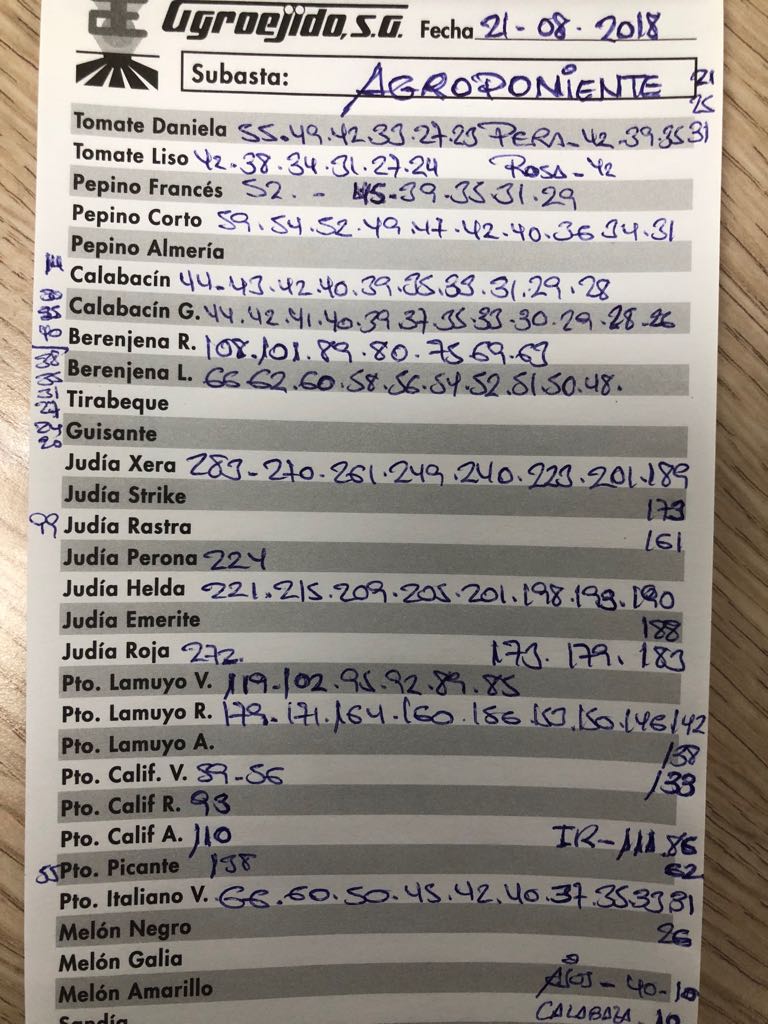 Agroejido, S.A. Fecha 21-08-2018
Subasta: AGROPONIENTE 21
25
Tomate Daniela 55.49.42.33.27.23 PERA-42.39.35.31
Tomate Liso 42.38.34.31.27.24 ROSA-42
Pepino Francés 52.-45.39.35.31.29
Pepino Corto 59.54.52.49.47.42.40.36.34.31
Pepino Almería
Calabacín 44-43.42.40.39.35.33.31.29.28
Calabacín G. 44.42.41.40.39.37.35.33.30.29.28.26
35
40
Berenjena R. 108.101.89.80.75.69.63
38
Berenjena L. 66.62.60.58.56.54.52.51.50.48.
35
31
27 Tirabeque
24
20 Guisante
Judía Xera 283-270.261.249.240.223.201.189
Judía Strike 173
99 Judía Rastra 161
Judía Perona 224
Judía Helda 221.215.209.205.201.198.193.190
Judía Emerite 188
Judía Roja 272. 173.179.183
Pto. Lamuyo V. 119-102.95.92.89.85
Pto. Lamuyo R. 179.171.164.160.156.153.150.146.142
Pto. Lamuyo A. 138
Pto. Calif. V. 89-56 133
Pto. Calif R. 93
Pto. Calif A. 110 IR-111.86
55 Pto. Picante 138 62
Pto. Italiano V. 66.60.50.45.42.40.37.35.33.31
Melón Negro 26
Melón Galia
Melón Amarillo AJOS-40-10
Sandía CALABAZA 10